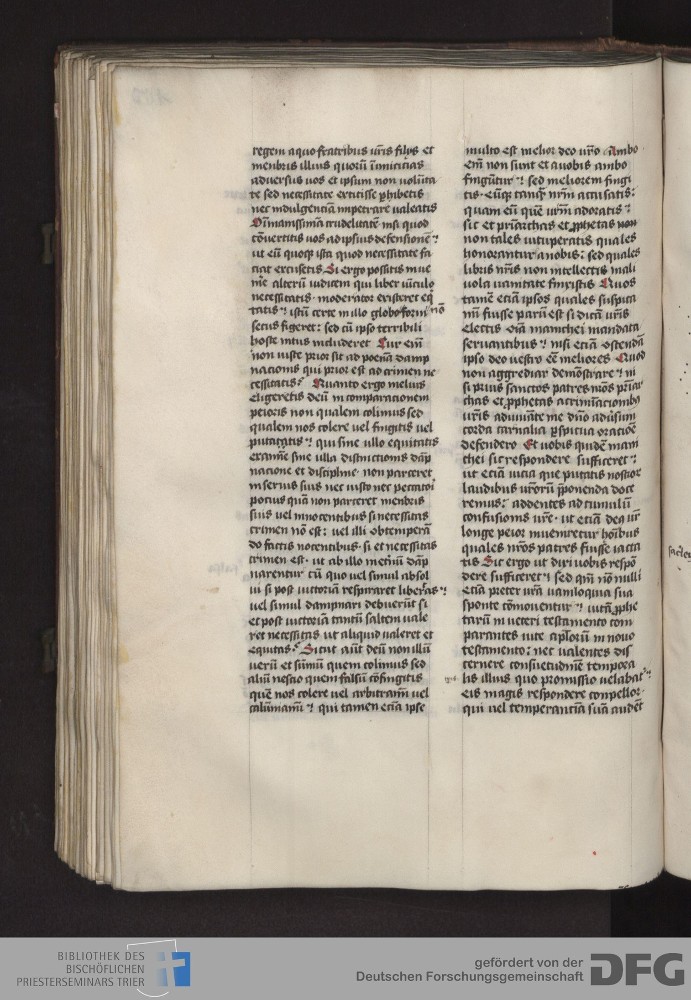 regem a quo fratribus vr̄is filijs et
menbris illius quorū inimicicias
aduersus uos et ipsum non uolūta
te sed necessitate extitisse phibetis
nec indulgenciā impetrare ualeatis
crudelitatē nisi quod
cōuertitis uos ad ipsius defensionē
ut eū quoqʒ ista quod necessitate fa
ciat excusetis Si ergo possitis inue
nire alterū iudicem qui liber uīculo
necessitatis moderator existeret eq̄
tatis istū certe in illo globo formī nō
secus figeret: sed cū ipso terribili
hoste intus includeret Cur em̄
non iuste prior sit ad poenā damp
nacionis qui prior est ad crimen ne
cessitatis Quanto ergo melius
eligeretis deū in comparacionem
peioris non qualem colimus sed
qualem nos colere uel fingitis uel
putatatis qui sine illo equitatis
examīe sine ulla distinctionis dāp
nacione et discipline non parceret
in seruis suis nec iusto nec peccatoi
pocius quā non parceret menbris
suis uel innocentibus si necessitas
crimen nō est: uel illi obtemperā
do factis nocentibus si et necessitas
crimen est ut ab illo dāp
narentur cū quo uel simul absol
ui si post uictoriā respiraret libertas
uel simul dampnari debuerūt si
et post uictoriā tantū saltem uale
ret necessitas ut aliquid ualeret et
equitas Sicut aūt deū non illū
uerū et sūmū quem colimus sed
aliū nescio quem falsū cōfingitis
quē nos colere uel arbitramī uel
calūniamī qui tamen eciā ipse
multo est melior deo vr̄o Ambo
em̄ non sunt et a uobis ambo
fingūtur sed meliorem fingi
tis eūqʒ tanqʒ nr̄m accusatis:
quam eū quē ur̄m adoratis
sic et priarchas et pphetas non
non tales uituperatis quales
honorantur a nobis: sed quales
libris nr̄is non intellectis mali
uola uanitate finxistis Quos
tamē eciā ipsos quales suspica
mī fuisse parū est si dicā vr̄is
electis oīa manichei mandata
seruantibus nisi eciā ostendā
ipso deo uestro eē meliores Quod
non aggrediar demōstrare ni
si prius sanctos patres nr̄os priar
chas et pphetas acriminacionibʒ
vr̄is adiuuāte me dn̄o aduersum
corda carnalia pspicua oracōe
defendero Et uobis quidē mani
chei sic respondere sufficeret
ut eciā uicia que putatis nostror
laudibus ur̄orū pponenda doce
remus: addentes ad cumulū
confusionis ur̄e ut eciā deus ur̄
longe peior inueniretur hoībus
quales nr̄os patres fuisse iacta
tis Sic ergo ut dixi uobis respō
dere sufficeret sed qm̄ nō nulli
eciā preter ur̄a uaniloquia sua
sponte cōmouentur uitā pphe
tarū in ueteri testamento com
parantes uite aplorū in nouo
testamento: nec ualentes dis
cernere consuetudinē tempora
lis illius quo promissio uelabat
eis magis respondere compellor
qui uel temperantiā suā audēt
BIBLIOTHEK DES
BISCHÖFLICHEN
PRIESTERSEMINARS TRIER
gefördert von der
Deutschen Forschungsgemeinschaft
DFG